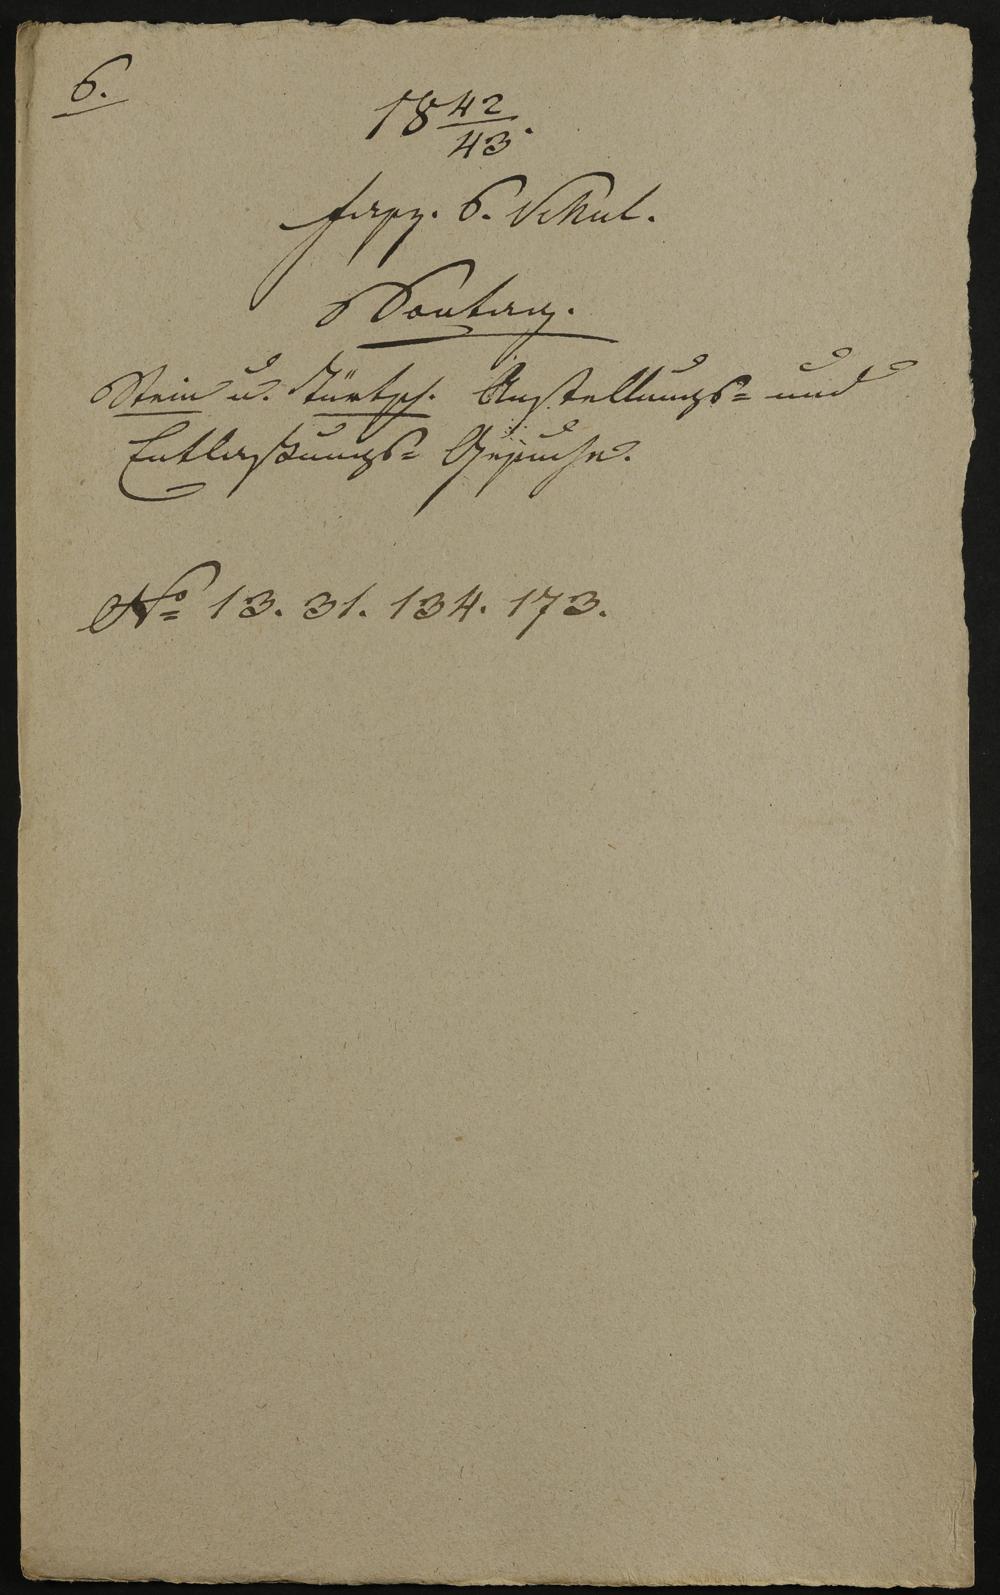 6.
18 42/43.
Fasz. 6. Schul.
Sontag.
Stein u. Türtsch. Anstellungs= und
Entlaßungs= Gesuche.
No 13. 31. 134. 173.